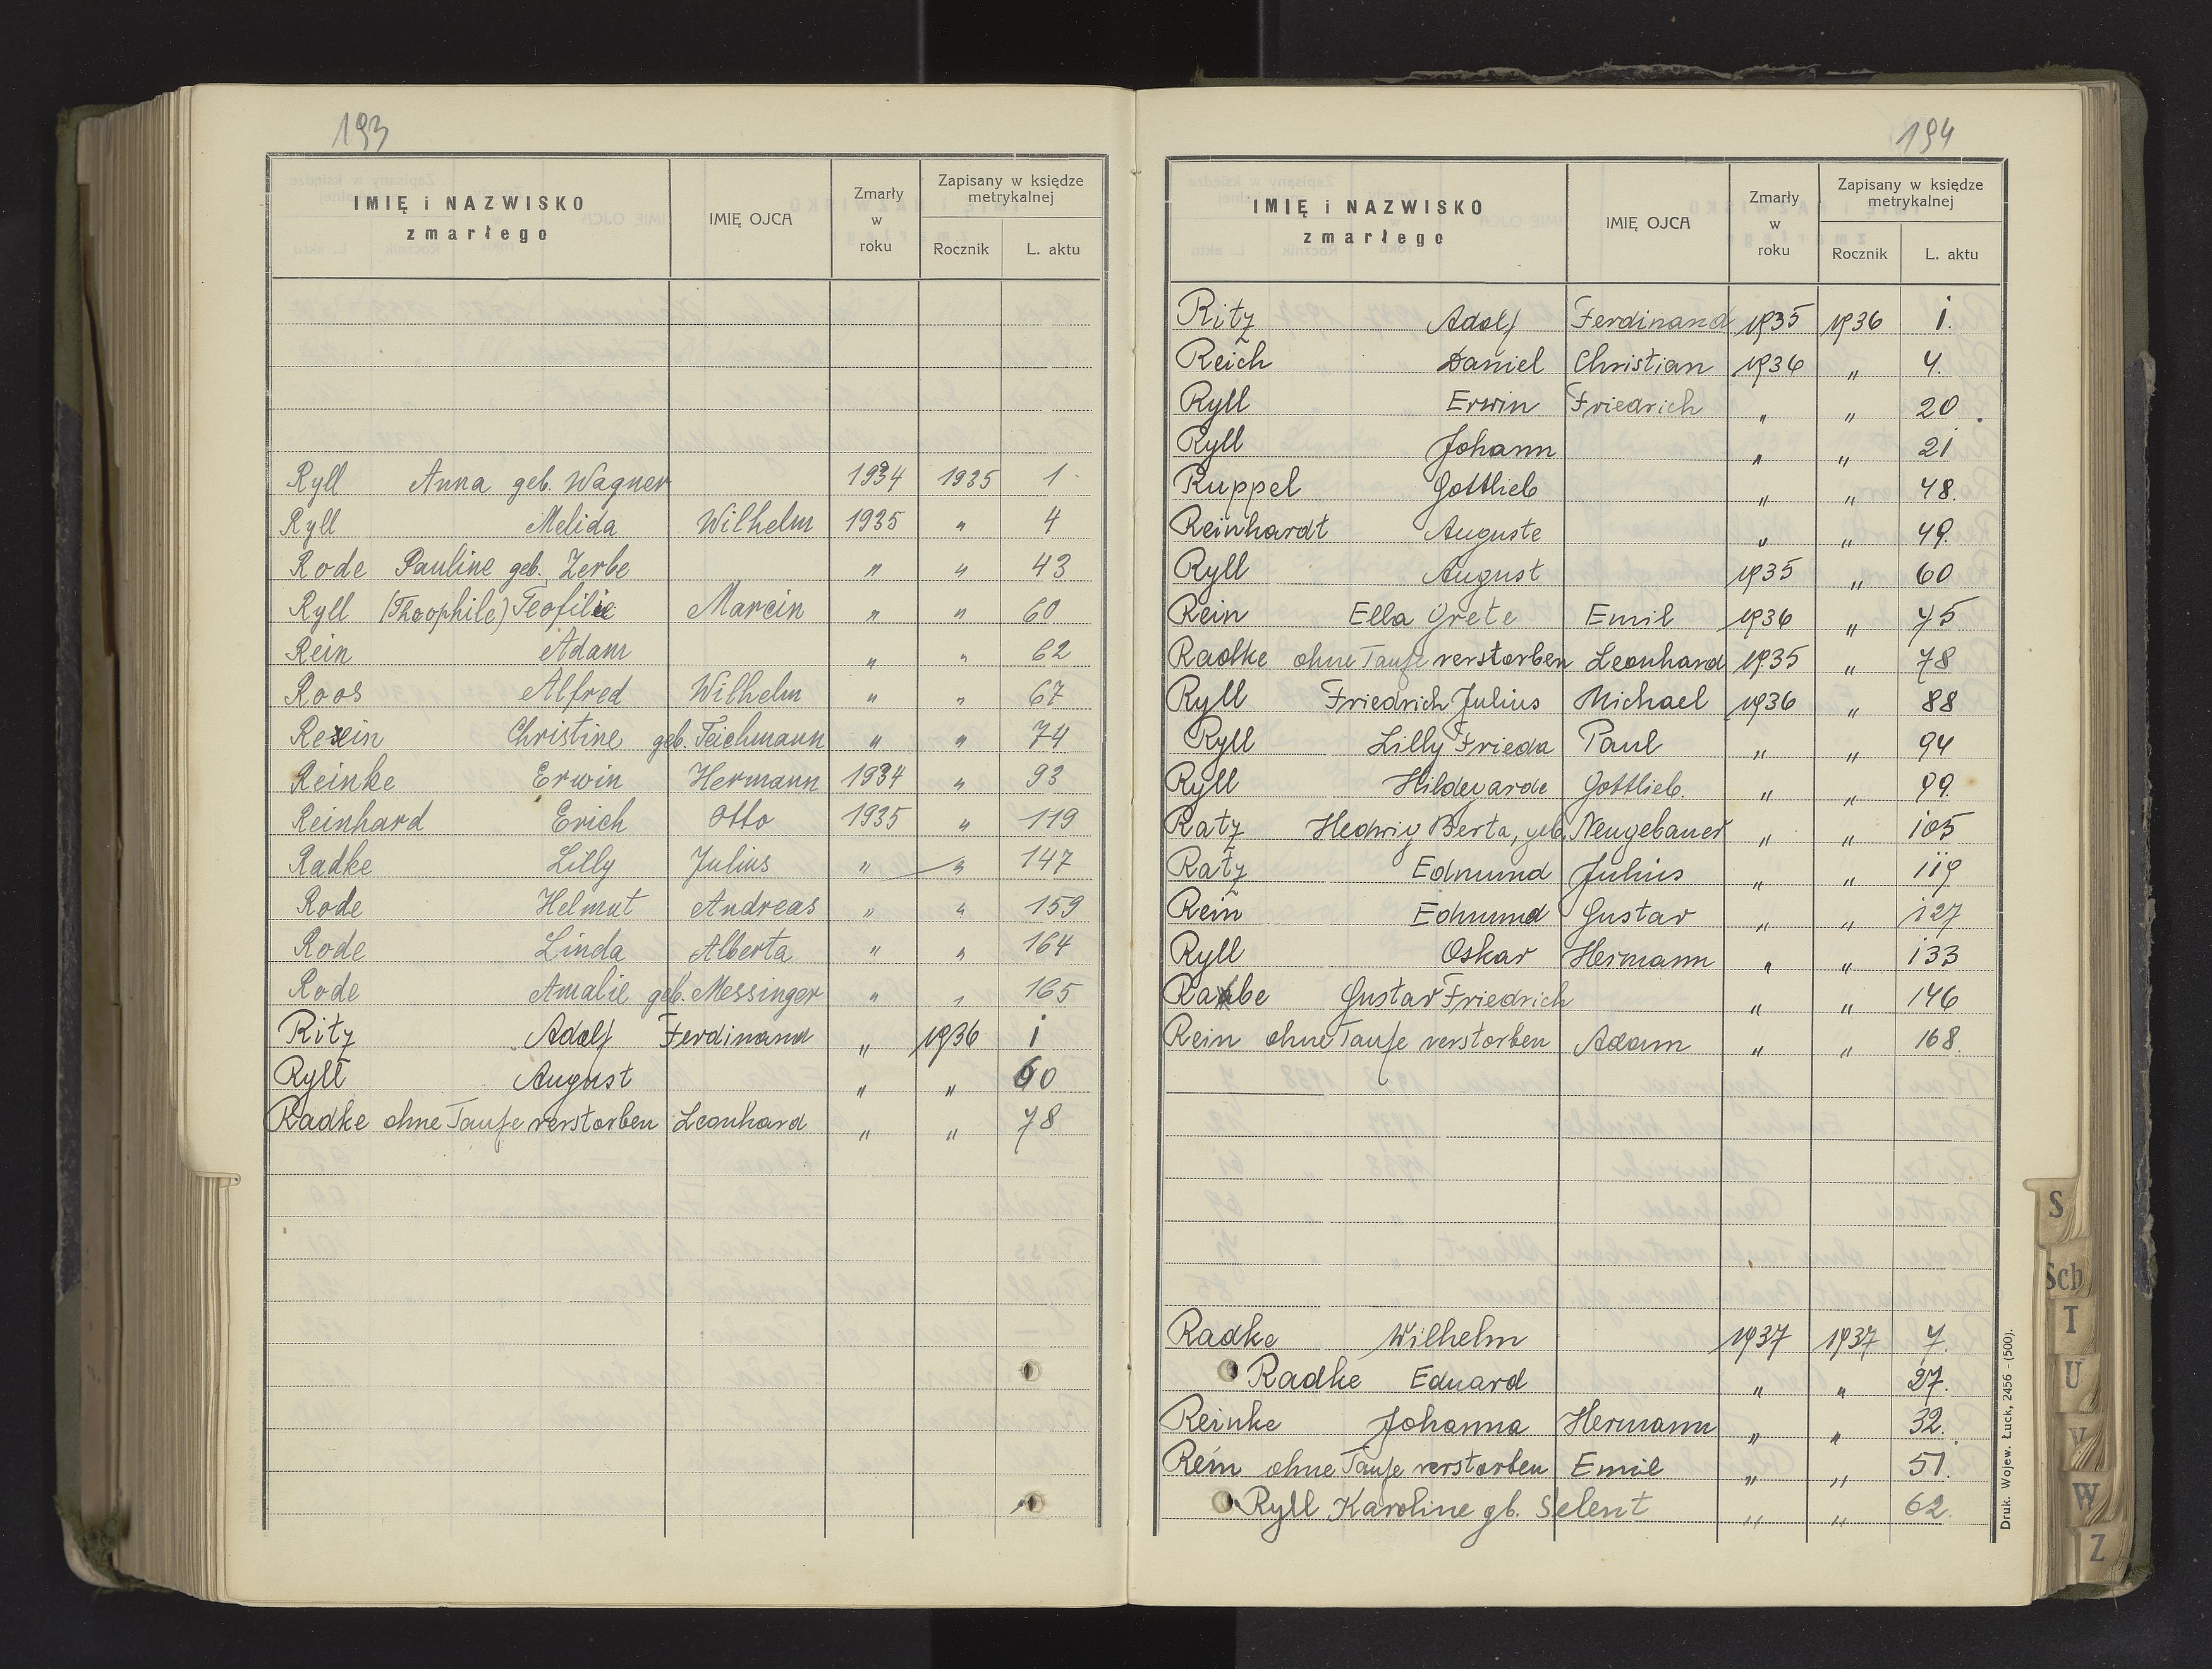 193
IMIĘ i NAZWISKO zmarłego | IMIĘ OJCA | Zmarły w roku | Zapisany w księdze metrykalnej
Rocznik | L. aktu
Ryll Anna geb. Wagner 1934 1935 1
Ryll Melida Wilhelm 1935 " 4
Rode Pauline geb. Zerbe " " 43
Ryll (Theophile) Teofilie Marcin " " 60
Rein Adam " " 62
Roos Alfred Wilhelm " " 67
Rein Christine geb. Teichmann " " 74
Reinke Erwin Hermann 1934 " 93
Reinhard Erich Otto 1935 " 119
Radke Lilly Julius " " 147
Rode Helmut Andreas " " 159
Rode Linda Alberta " " 164
Rode Amalie geb. Messinger " " 165
Ritz Adolf Ferdinand " 1936 1
Ryll August " " 60
Radke ohne Taufe verstorben Leonhard " " 78
194
IMIĘ i NAZWISKO zmarłego | IMIĘ OJCA | Zmarły w roku | Zapisany w księdze metrykalnej
Rocznik | L. aktu
Ritz Adolf Ferdinand 1935 1936 1.
Reich Daniel Christian 1936 " 4.
Ryll Erwin Friedrich " " 20.
Ryll Johann " " 21
Ruppel Gottlieb " " 48.
Reinhardt Auguste " " 49.
Ryll August 1935 " 60
Rein Ella Grete Emil 1936 " 75
Radke ohne Taufe verstorben Leonhard 1935 " 78
Ryll Friedrich Julius Michael 1936 " 88
Ryll Lilly Frieda Paul " " 94
Ryll Hildegarde Gottlieb. " " 99.
Ratz Hedwig Berta, geb. Neugebauer " " 105
Ratz Edmund Julius " " 119
Rein Edmund Gustav " " 127
Ryll Oskar Hermann " " 133
Rabe Gustav Friedrich " " 146
Rein ohne Taufe verstorben Adam " " 168.
Radke Wilhelm 1937 1937 7.
Radke Eduard " " 27.
Reinke Johanna Hermann " " 32.
Rein ohne Taufe verstorben Emil " " 51.
Ryll Karoline gb. Selent " " 62.
Druk. Wojew. Łuck, 2456 - (500).
S
Sch
T
U
V
W
Z